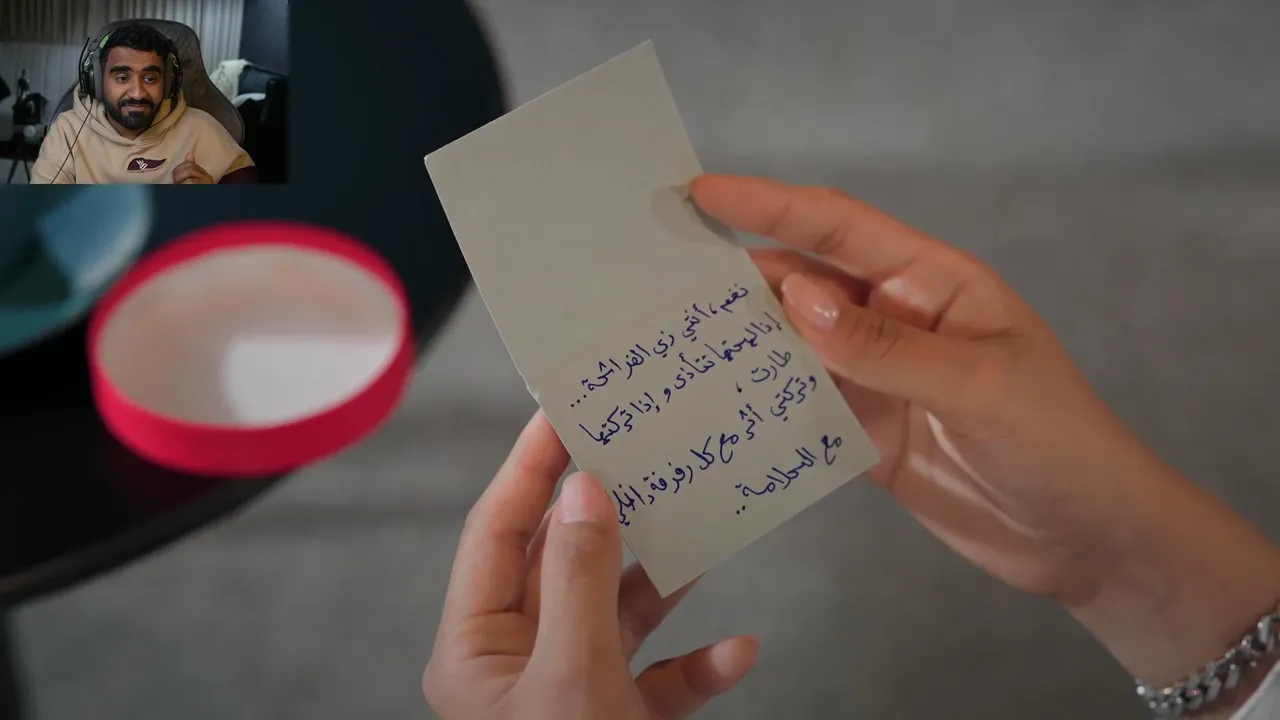 نغم، أنتي زي الفراشة...
إذا لمستها تتأذى و إذا تركتها
طارت ،
وتركتي أثر مع كل رفرفة داخلي
مع السلامة..